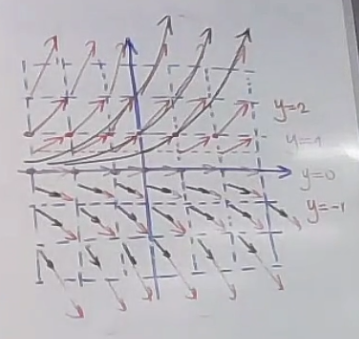 y=2
y=1
y=0
y=-1